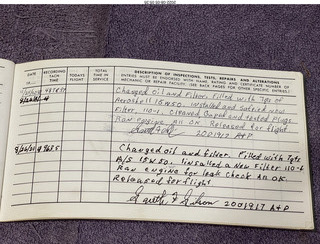 DATE
19
RECORDING TACH TIME
TODAY'S FLIGHT
TOTAL TIME IN SERVICE
DESCRIPTION OF INSPECTIONS, TESTS, REPAIRS AND ALTERATIONS
ENTRIES MUST BE ENDORSED WITH NAME, RATING AND CERTIFICATE NUMBER OF
MECHANIC OR REPAIR FACILITY. (SEE BACK PAGES FOR OTHER SPECIFIC ENTRIES.)
Changed Oil and Filter. Filled with 7qts of
Aeroshell 15W50. Installed and Safetied new
Filter. 110-2. Cleaned, Gapped and tested Plugs.
Ran engine All OK Released for flight
2001917 A+P
Changed oil and filter. Filled with 7qts
A/S 15W50. Installed a New Filter 110-2
Ran engine for leak check All OK.
Released for flight
2001917 A+P